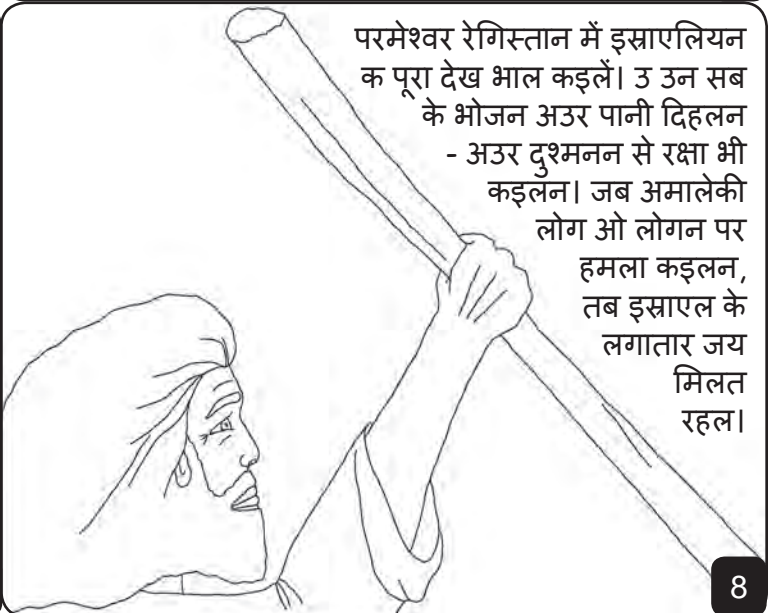 परमेश्वर रेगिस्तान में इस्राएलियन
क पूरा देख भाल कइलें। उ उन सब
के भोजन अउर पानी दिहलन
- अउर दुश्मनन से रक्षा भी
कइलन। जब अमालेकी
लोग ओ लोगन पर
हमला कइलन,
तब इस्राएल के
लगातार जय
मिलत
रहल।
8